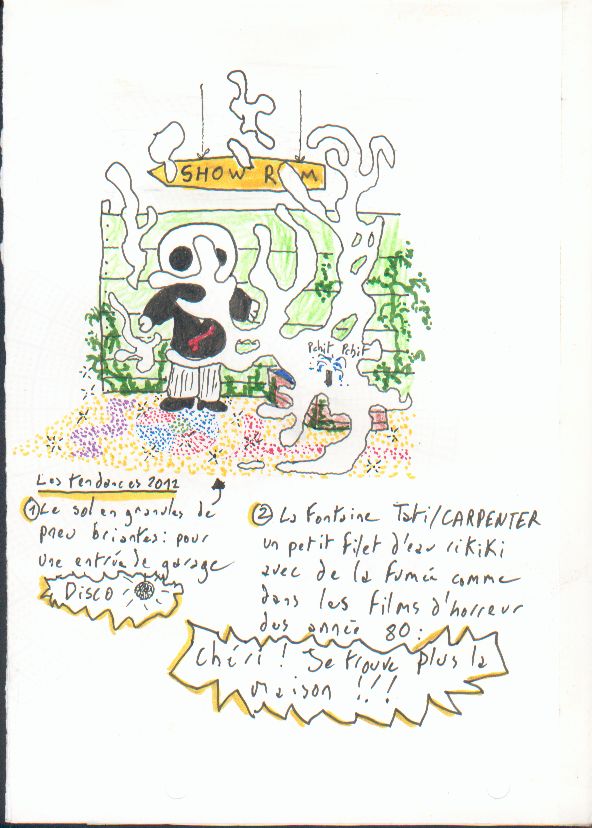 SHOW ROOM
Pchit Pchit
Les tendances 2012
① Le sol en granules de
pneu briantes : pour
une entrée de garage
DISCO
② La Fontaine Tati/CARPENTER
un petit filet d'eau rikiki
avec de la fumée comme
dans les films d'horreur
des année 80 :
Chéri ! Je trouve plus la
maison !!!